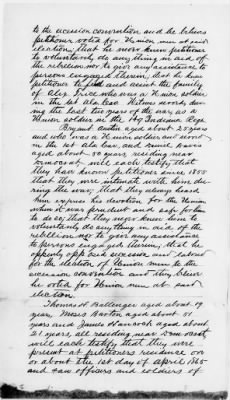 to the secession convention and he believes
petitioner voted for Union men at said
election; that he never knew petitioner
to voluntarily do any thing in aid of
the rebellion nor to give any assistance to
persons engaged therein; that he knew
petitioner to feed and assist the family
of Alex Trice who was a Union soldier
in the 1st Ala Cav. Witness served during
the last two years of the war, as a
Union soldier in the 149 Indiana Regt
Bryant Canton aged about 35 years
and who was a Union soldier and served
in the 1st Ala Cav, and Lewis Davis
aged about 50 years residing near
Democrat will each testify that
they had known petitioner since 1855
that they were intimate with him during
the war; that they always heard
him express his devotion for the Union
when it was prudent and safe for him
to do so; that they never knew him to
voluntarily do anything in aid of the
rebellion nor to give any assistance
to persons engaged therein; that he
openly opposed secession and labored
for the election of Union men to the
secession convention and they believe
he voted for Union men at said
election.
Thomas N Ballenger aged about 19
years, Moses Barton aged about 51
years and James Hancock aged about
21 years all residing near Democrat,
will each testify that they were
present at petitioners residence on
or about the 1st day of April 1865
and saw officers and soldiers of